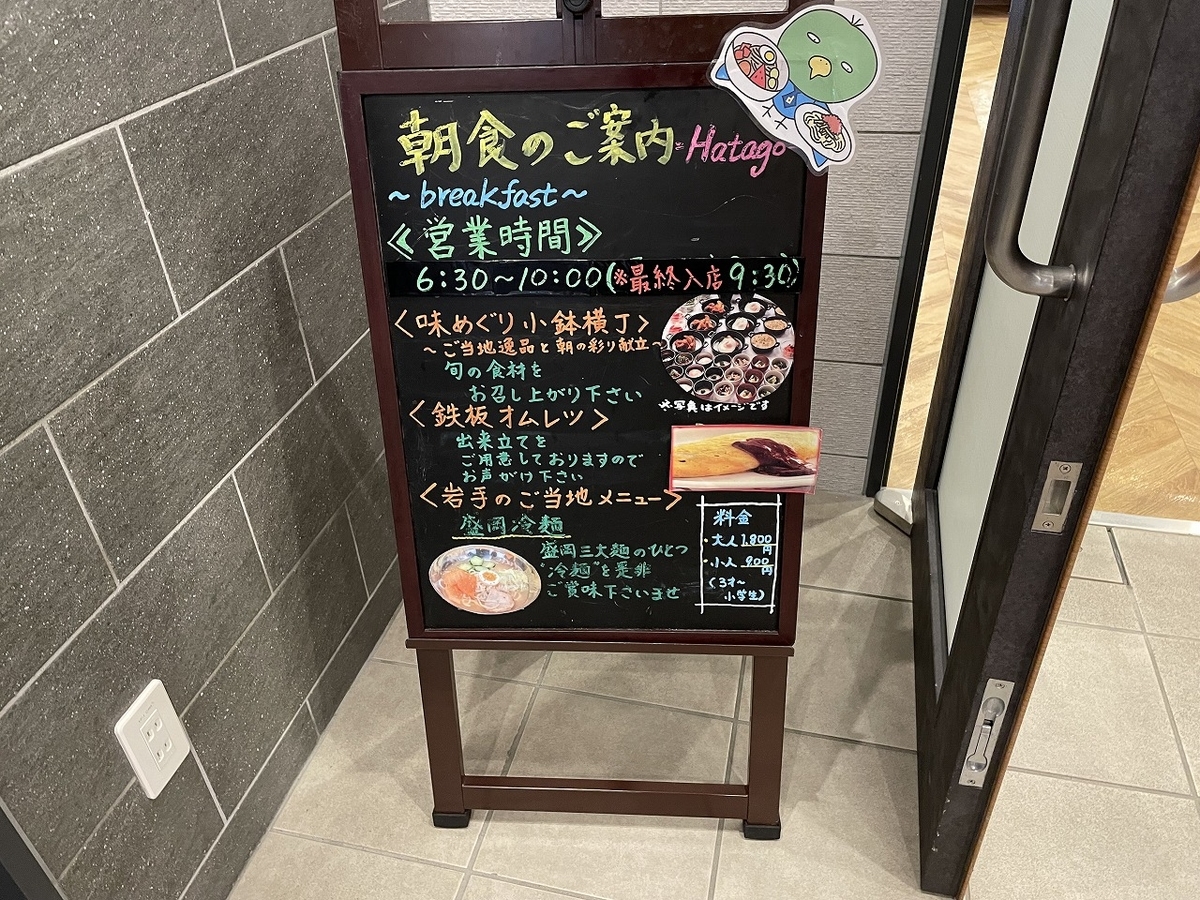 朝食のご案内 Hatago
~breakfast~
≪営業時間≫
6:30~10:00(※最終入店9:30)
<味めぐり小鉢横丁>
~ご当地逸品と朝の彩り献立~
旬の食材を
お召し上がり下さい
※写真はイメージです
<鉄板オムレツ>
出来立てを
ご用意しておりますので
お声がけ下さい
<岩手のご当地メニュー>
盛岡冷麺
盛岡三大麺のひとつ
"冷麺"を是非
ご賞味下さいませ
料金
・大人1,800円
・小人 900円
(3才~
小学生)